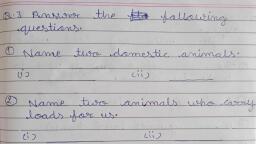 Q.3 Answer the following
questions.
① Name two domestic animals.
(i) (ii)
② Name two animals who carry
loads for us.
(i) (ii)